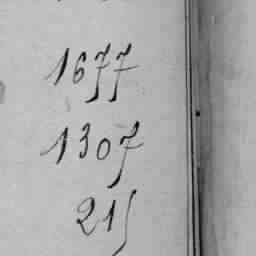 1677
1307
215